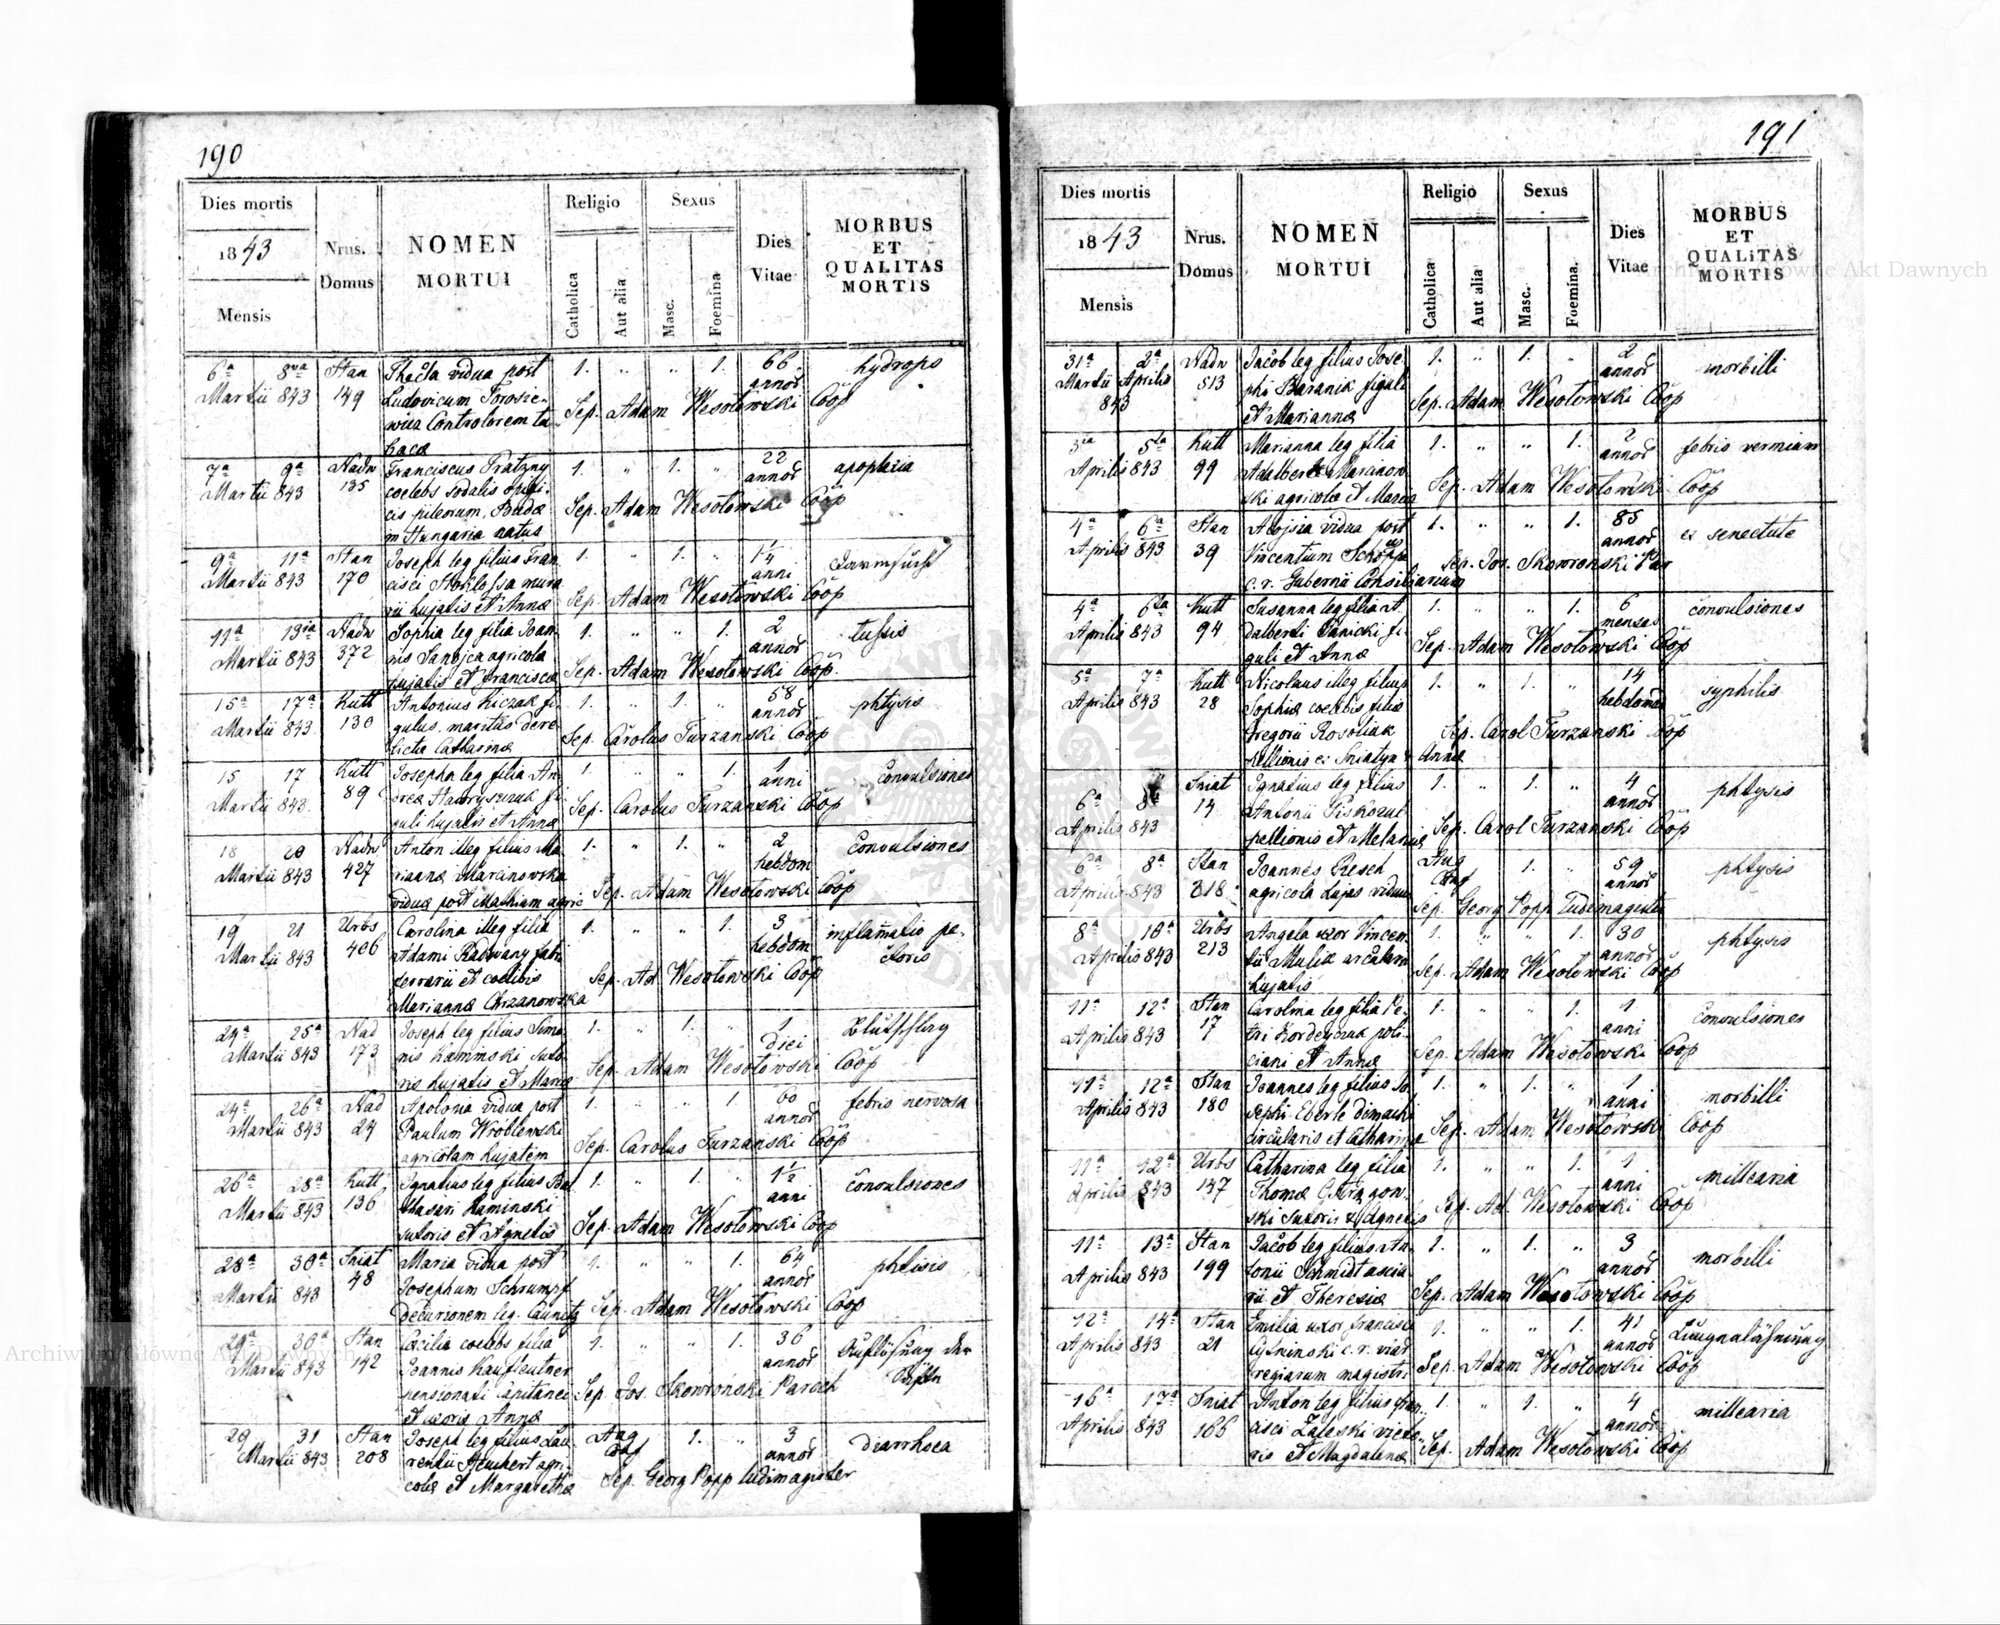 190
Dies mortis
1843
Mensis
Nrus. Domus
NOMEN MORTUI
Religio
Catholica
Aut alia
Sexus
Masc.
Foemina
Dies Vitae
MORBUS ET QUALITAS MORTIS
6ª 8va Stan Thecla vidua post 1. " " 1. 66 hydrops
Martii 843 149 Ludovicum annor
Sep. Adam Wesołowski Coop
wicz Controlorem ta-
bacæ
7ª 9ª Nadw Franciscus Tratzny 1. " 1. " 22 apoplexia
Martii 843 135 coelebs sodalis opifi- annor
cis pileorum, Budæ Sep. Adam Wesołowski Coop
in Hungaria natus
9ª 11ª Stan Joseph leg filius Fran- 1. " 1. " 1¼
Martii 843 170 cisci Stokłossa mura- anni
rii hujatis et Annæ Sep. Adam Wesołowski Coop
11ª 13tia Nadw Sophia leg filia Joan- 1. " " 1. 2 tussis
Martii 843 372 nis Sanojca agricola annor
hujatis et Franciscæ Sep. Adam Wesołowski Coop.
15ª 17ª Kutt Antonius Kiczak fi- 1. " 1. " 58 phtysis
Martii 843 130 gulus, maritus dere- annor
lictæ Catharinæ Sep. Carolus Turzanski Coop
15 17 Kutt Josepha leg filia An- 1. " " 1. 1 convulsiones
Martii 843. 89 dreæ fi- anni
guli hujatis et Annæ Sep. Carolus Turzanski Coop
18 20 Nadw Anton illeg filius Ma- 1. " 1. " 2 convulsiones
Martii 843 427 riannæ Marcinowska hebdom
vidua post Mathiam agric Sep. Adam Wesołowski Coop
19 21 Urbs Carolina illeg filia 1. " " 1. 3 inflamatio pe-
Martii 843 406 Adami Radwany fabri hebdom ctoris
ferrarii et coelibis Sep. Ad Wesołowski Coop
Mariannæ Chrzanowska
24ª 25ª Nad Joseph leg filius Simo- 1. " 1. " 1
Martii 843 173 nis suto- diei
ris hujatis et Mariæ Sep. Adam Wesołowski Coop
24ª 26ª Nad Apolonia vidua post 1. " " 1. 60 febris nervosa
Martii 843 24 Paulum Wróblewski annor
agricolam hujatem Sep. Carolus Turzanski Coop
26ª 28ª Kutt Ignatius leg filius Bal- 1. " 1. " 1½ convulsiones
Martii 843 136 thasari Kaminski anni
sutoris et Agnetis Sep. Adam Wesołowski Coop
28ª 30ª Sniat Maria vidua post 1. " " 1. 64 phtisis
Martii 843 48 Josephum Schrumpf annor
Decurionem leg. Sep. Adam Wesołowski Coop
29ª 30ª Stan Cecilia coelebs filia 1. " " 1. 36 Auflösung der
Martii 843 142 Joannis annor
pensionati Capitanei Sep. Jos. Skowroński Paroch
et uxoris Annæ
29 31 Stan Joseph leg filius Lau- Aug Conf 1. " 3 diarrhoea
Martii 843 208 rentii agri- annor
colæ et Margarethæ Sep. Georg Popp ludimagister
191
Dies mortis
1843
Mensis
Nrus. Domus
NOMEN MORTUI
Religio
Catholica
Aut alia
Sexus
Masc.
Foemina.
Dies Vitae
MORBUS ET QUALITAS MORTIS
31ª 2ª Nadw Jacob leg filius Jose- 1. " 1. " 2 morbilli
Martii Aprilis 513 phi Baranik figuli annor
843 et Mariannæ Sep. Adam Wesołowski Coop
3tia 5ta Kutt Marianna leg filia 1. " " 1. 2 febris vermium
Aprilis 843 99 Adalberti Maranow- annor
ski agricolæ et Mariæ Sep. Adam Wesołowski Coop
4ª 6ª Stan Alojsia vidua post 1. " " 1. 85 ex senectute
Aprilis 843 39 Vincentium annor
c. r. Gubernii Consiliarium Sep. Jos. Skowroński Par
4ª 6ta Kutt Susanna leg filia A- 1. " " 1. 6 convulsiones
Aprilis 843 94 dalberti Panicki fi- menses
guli et Annæ Sep. Adam Wesołowski Coop
5ª 7ª Kutt Nicolaus illeg filius 1. " 1. " 14 syphilis
Aprilis 843 28 Sophiæ coelibis filiæ hebdomad
Gregorii Rosoliak Sep. Carol Turzanski Coop
pellionis ex Sniatyn & Annæ
6ª 8ª Sniat Ignatius leg filius 1. " 1. " 4 phtysis
Aprilis 843 14 Antonii Piskozub annor
pellionis et Melaniæ Sep. Carol Turzanski Coop
6ª 8ª Stan Joannes Resch Aug Conf 1. " 59 phtysis
Aprilis 843 318 agricola hujas viduus annor
Sep. Georg Popp Ludimagister
8ª 10ª Urbs Angela uxor Vincen- 1. " " 1. 30 phtysis
Aprilis 843 213 tii Mulik annor
hujatis Sep. Adam Wesołowski Coop
11ª 12ª Stan Carolina leg filia Pe- 1. " " 1. 1 convulsiones
Aprilis 843 17 tri Kordeyczuk poli- anni
ciani et Annæ Sep. Adam Wesołowski Coop
11ª 12ª Stan Joannes leg filius Jo- 1. " 1. " 1 morbilli
Aprilis 843 180 sephi Eberle anni
circularis et Catharinæ Sep. Adam Wesołowski Coop
11ª 12ª Urbs Catharina leg filia 1. " " 1. 1 millearia
Aprilis 843 147 Thomæ anni
ski sutoris & Agnetis Sep. Ad. Wesołowski Coop
11ª 13ª Stan Jacob leg filius An- 1. " 1. " 3 morbilli
Aprilis 843 199 tonii Schmidt ascia- annor
rii et Theresiæ Sep. Adam Wesołowski Coop
12ª 14ª Stan Emilia uxor Francisci 1. " " 1. 41 Lungenlähmung
Aprilis 843 21 c. r. viar annor
regiarum magistri Sep. Adam Wesołowski Coop
16ª 17ª Sniat Anton leg filius Fran- 1. " 1. " 4 millearia
Aprilis 843 166 cisci Zaleski vieto- annor
ris et Magdalenæ Sep. Adam Wesołowski Coop
Archiwum Główne Akt Dawnych
Archiwum Główne Akt Dawnych